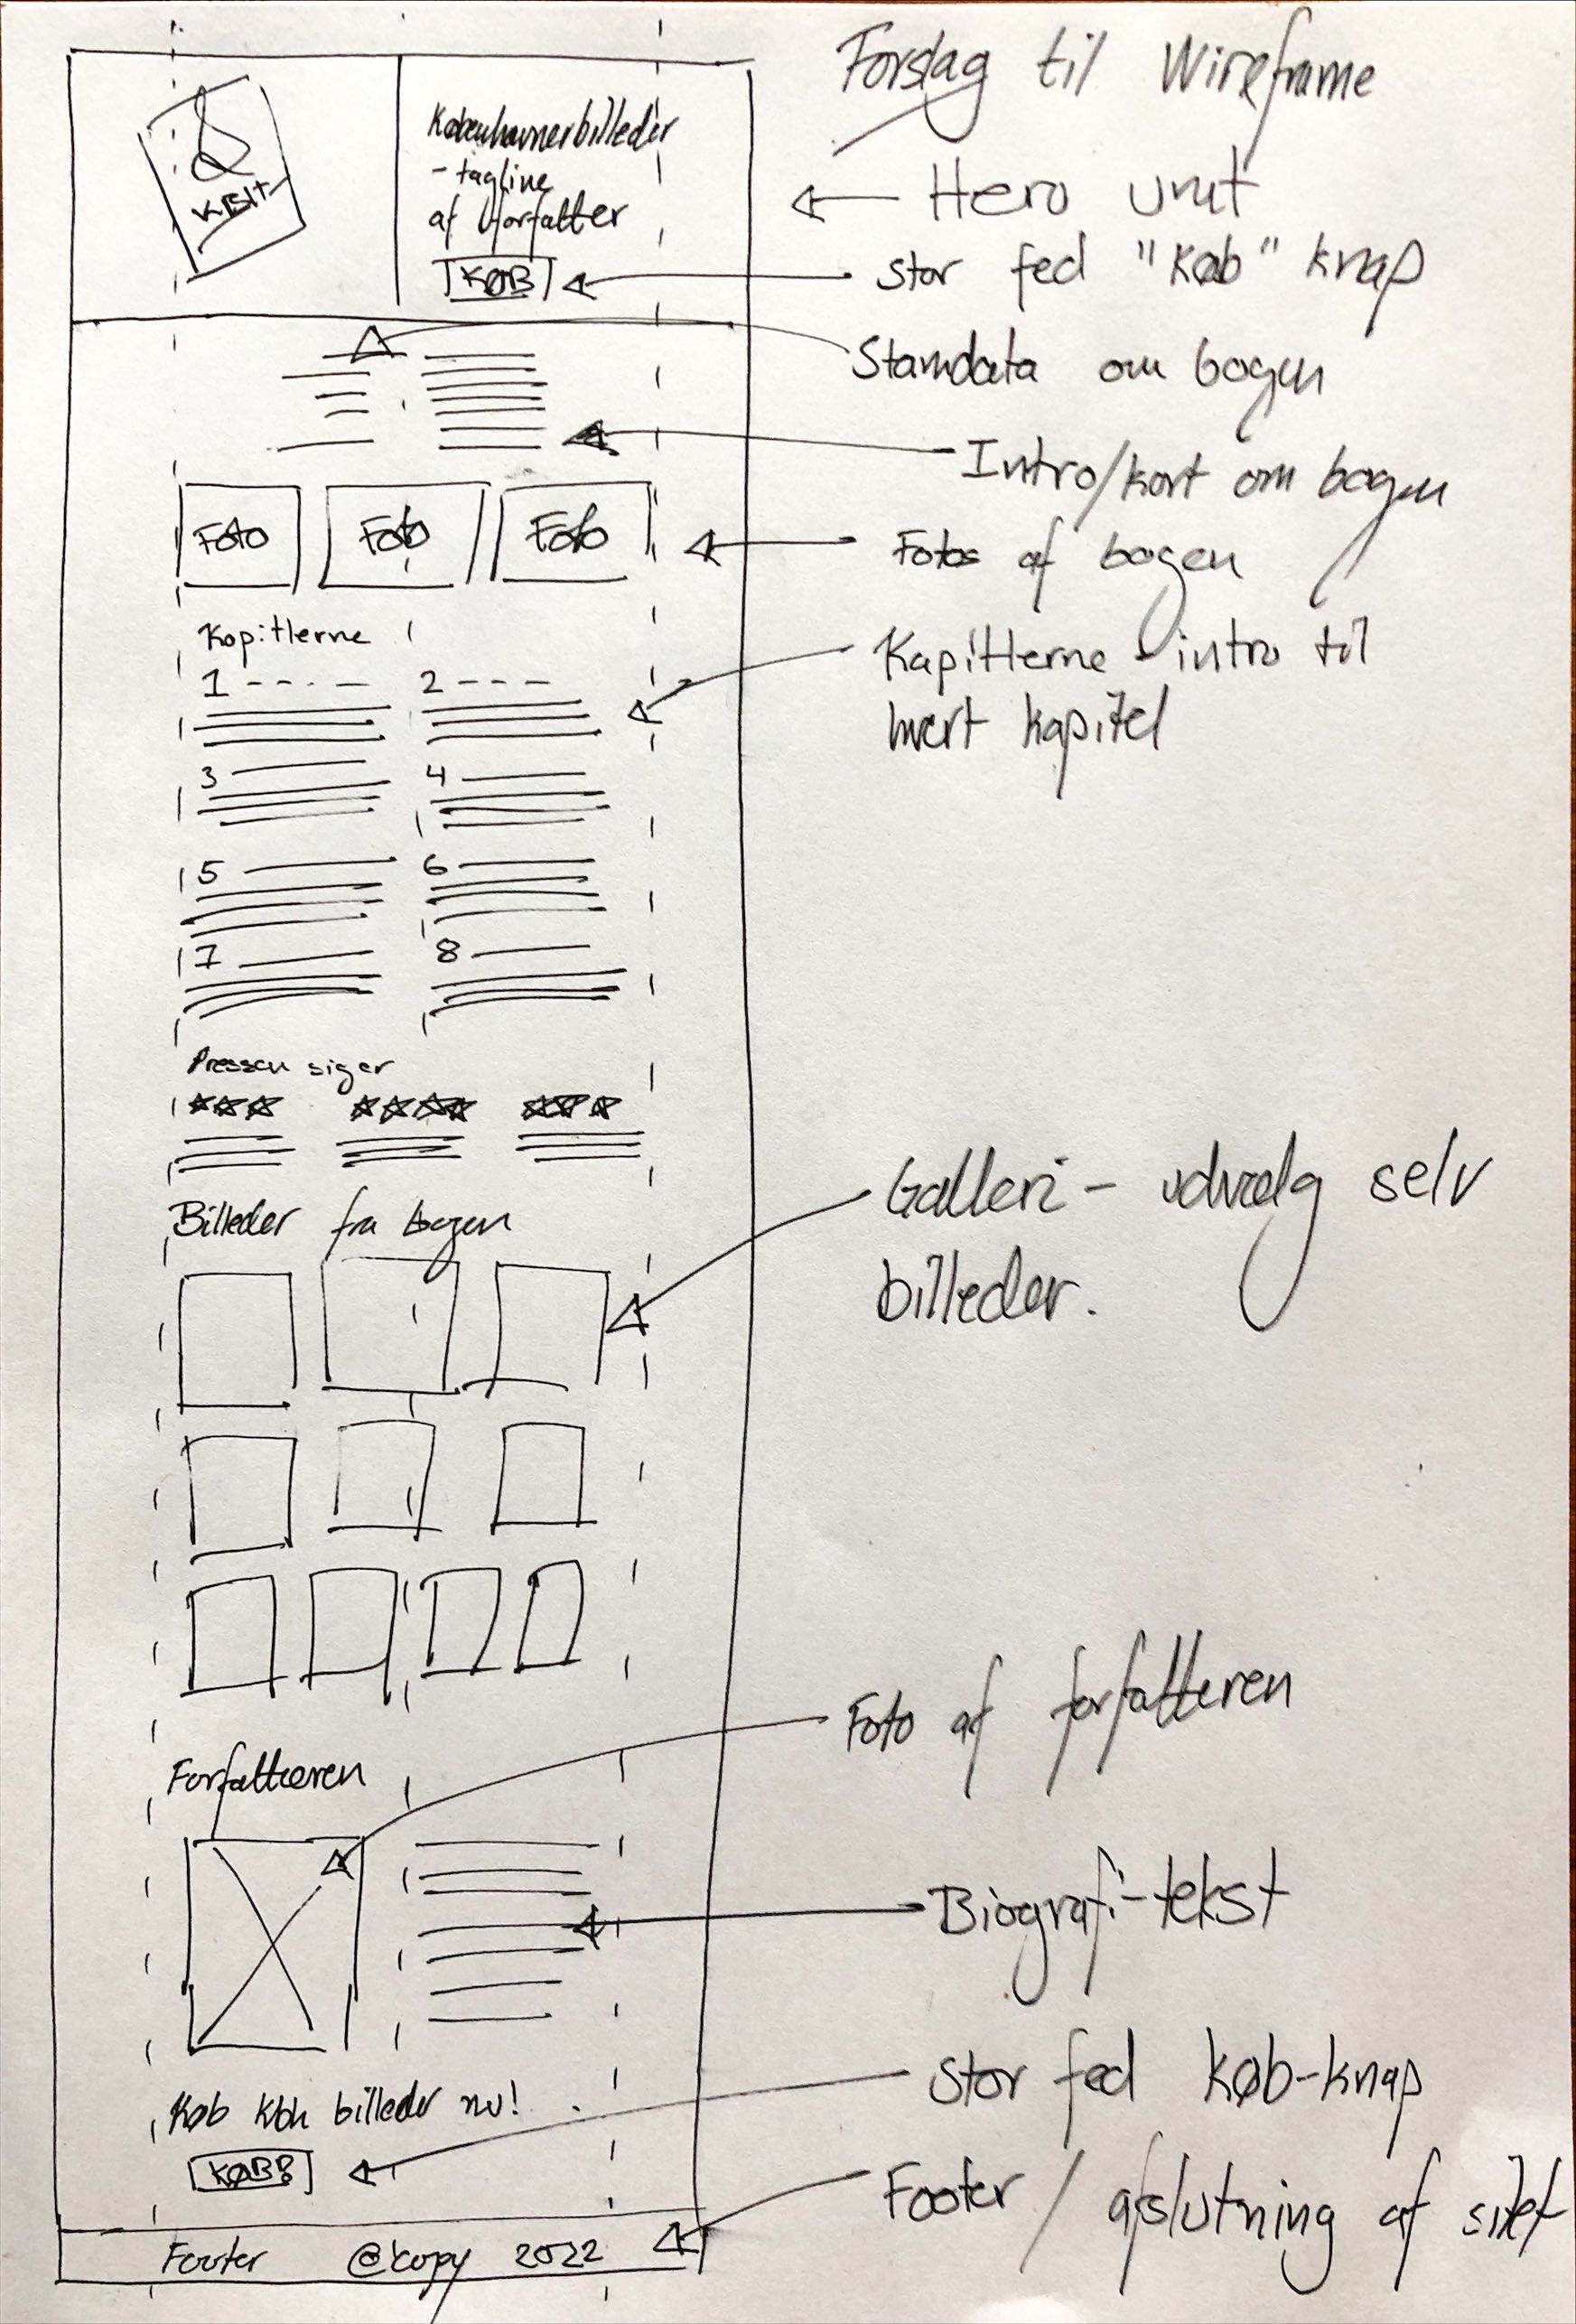 Forslag til Wireframe
KBH
Københavnerbilleder
- tagline
af forfatter
KØB
← Hero unit
stor fed "Køb" knap
Stamdata om bogen
Intro/kort om bogen
Foto Foto Foto
Fotos af bogen
Kapitlerne
1 2
3 4
5 6
7 8
Kapitlerne - intro til
hvert kapitel
Pressen siger
Billeder fra bogen
Galleri - udvælg selv
billeder.
Forfatteren
Foto af forfatteren
Biografi-tekst
Køb Kbh billeder nu!
KØB!
Stor fed køb-knap
Footer @copy 2022
Footer / afslutning af sitet